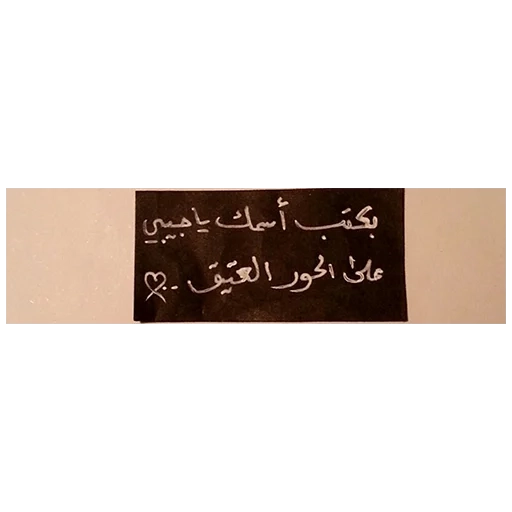 بكتب أسمك ياحبيبي
على الحور العتيق ..